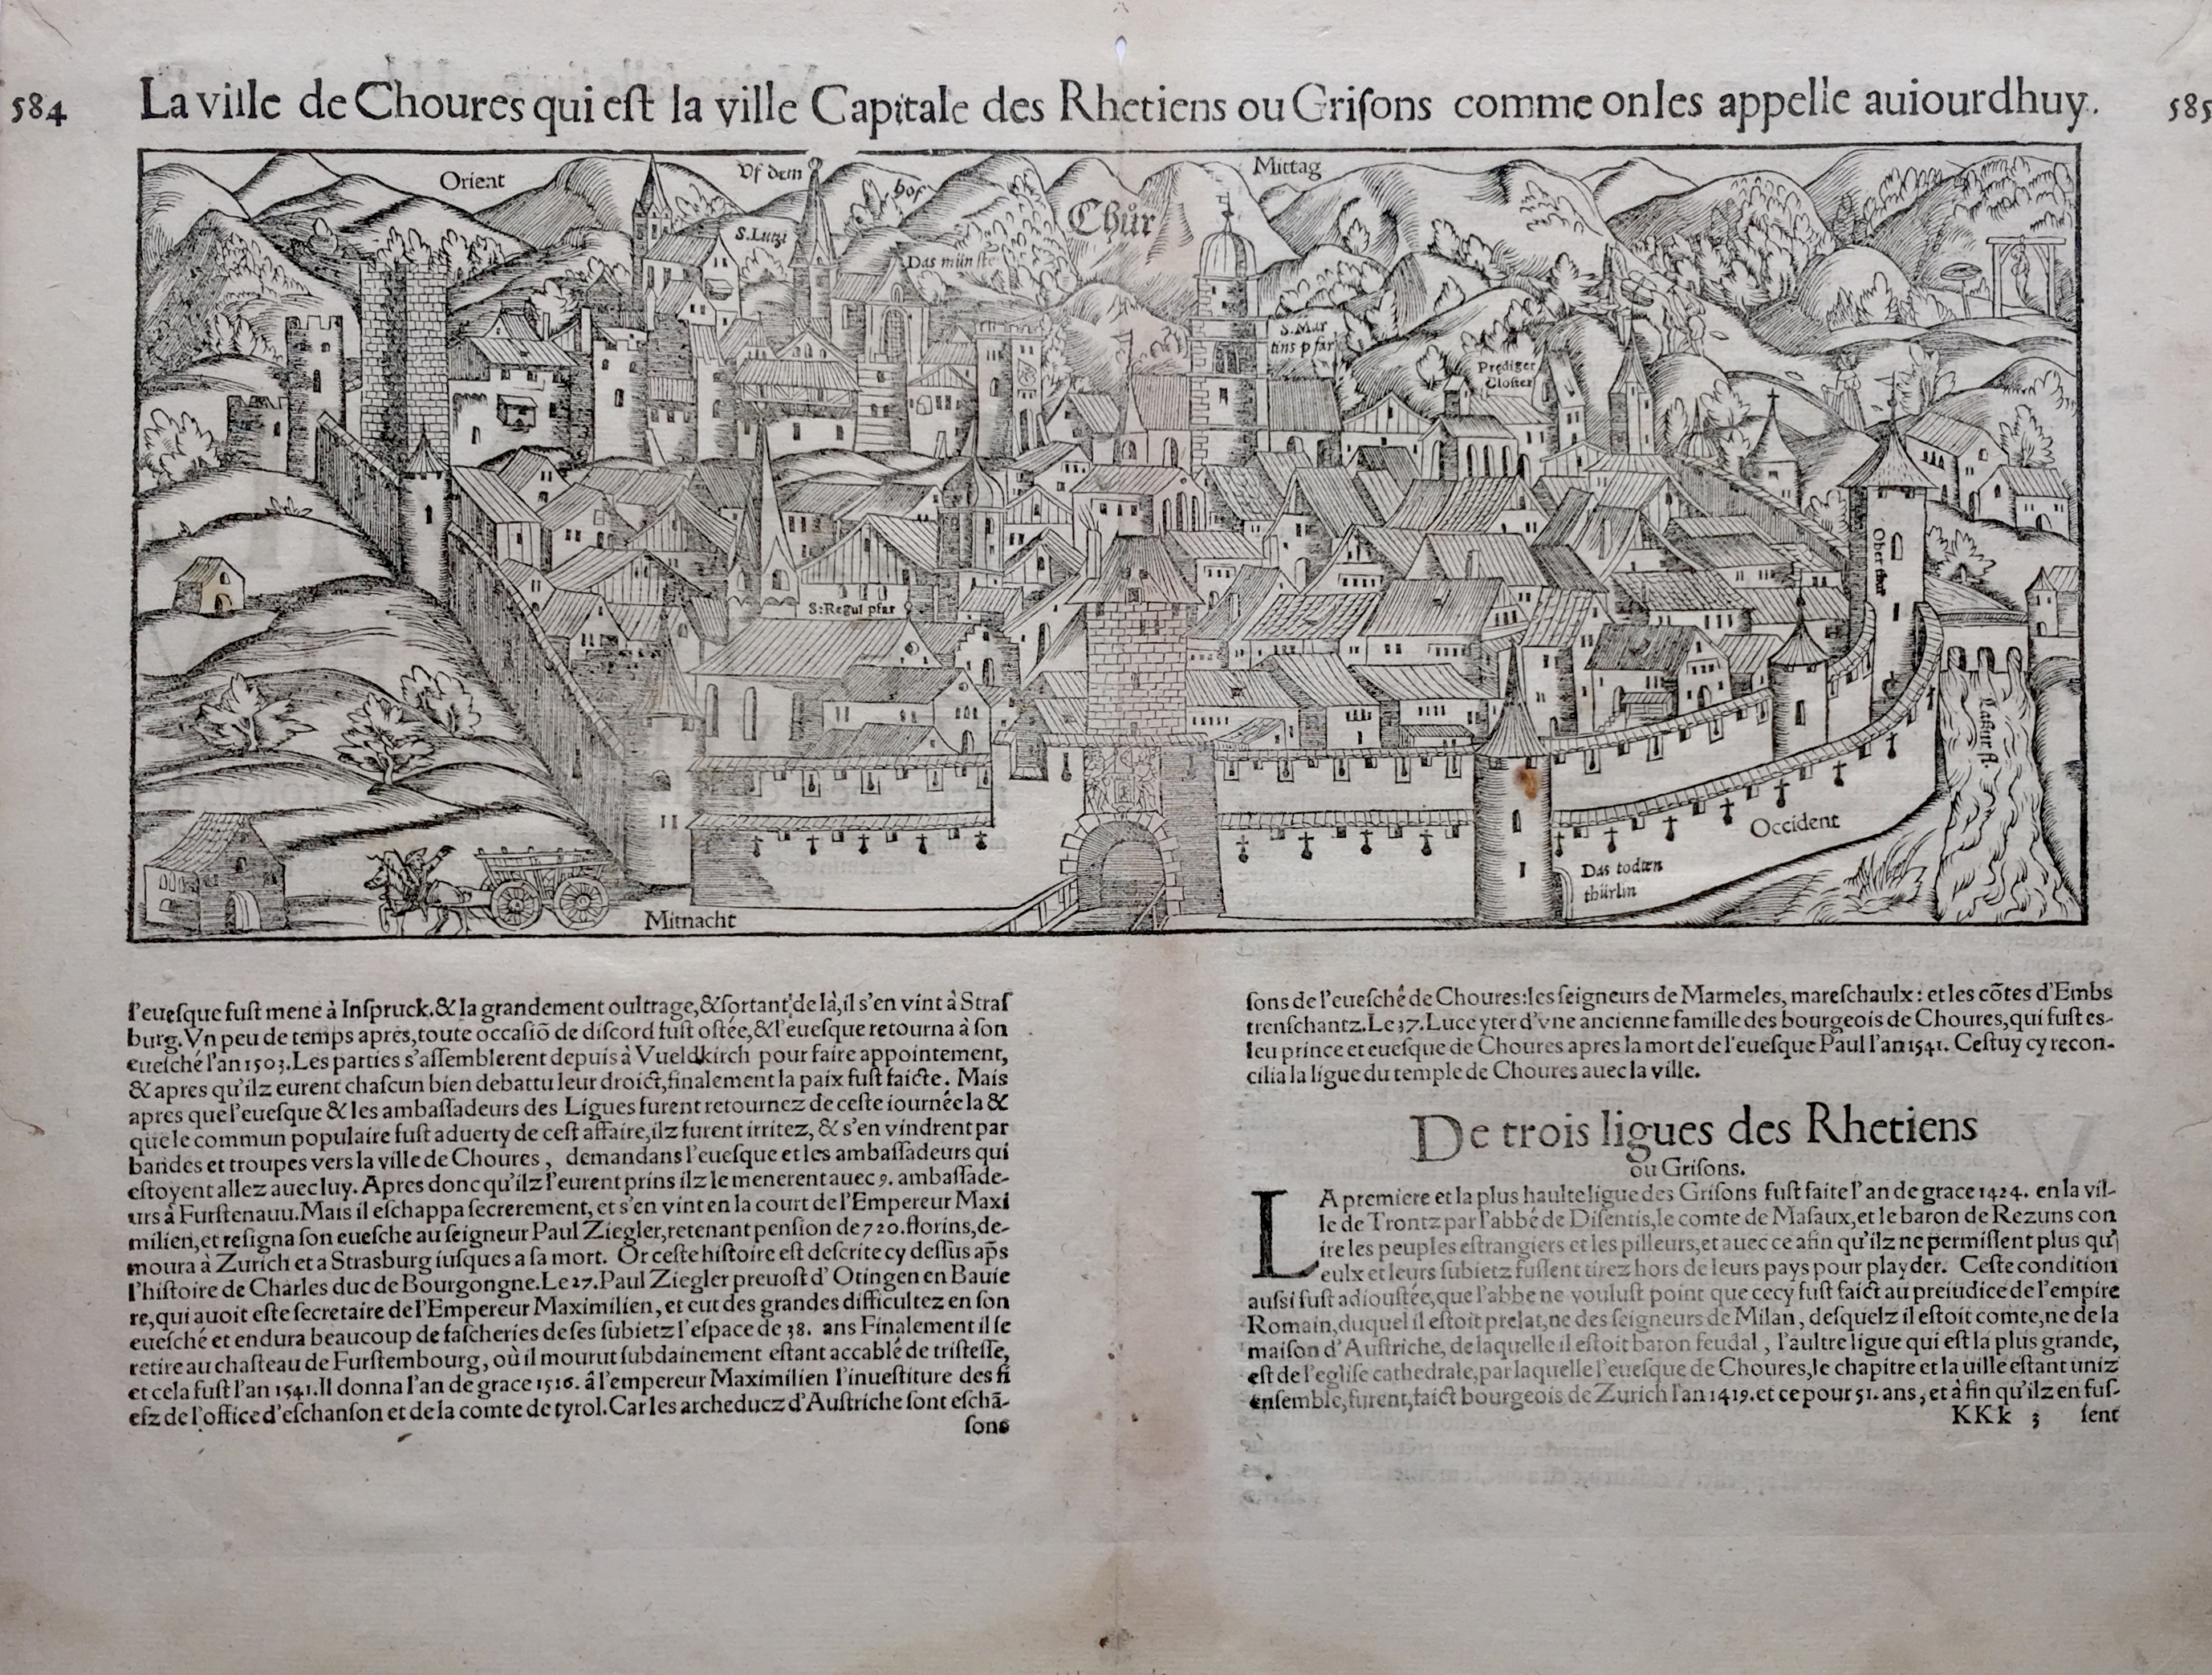 584
La ville de Choures qui eſt la ville Capitale des Rhetiens ou Griſons comme on les appelle auiourdhuy.
585
Orient
Vf dem
hof
Mittag
Chůr
S. Luzi
Das münſte
S. Mar
tins pfar
Prediger
Cloſter
Ober thor
S: Regul pfar
Occident
Das todten
thürlin
Mitnacht
l'eueſque fuſt mené à Inſpruck. & la grandement oultrage, & ſortant de là, il s'en vint à Straſ
burg. Vn peu de temps apres, toute occaſiõ de diſcord fuſt oſtée, & l'eueſque retourna à ſon
eueſché l'an 1503. Les parties s'aſſemblerent depuis à Vueldkirch pour faire appointement,
& apres qu'ilz eurent chaſcun bien debattu leur droict, finalement la paix fuſt faicte. Mais
apres que l'eueſque & les ambaſſadeurs des Ligues furent retournez de ceſte iournée la &
que le commun populaire fuſt aduerty de ceſt affaire, ilz furent irritez, & s'en vindrent par
bandes et troupes vers la ville de Choures, demandans l'eueſque et les ambaſſadeurs qui
eſtoyent allez auec luy. Apres donc qu'ilz l'eurent prins ilz le menerent auec 9. ambaſſade-
urs à Furſtenauu. Mais il eſchappa ſecrerement, et s'en vint en la court de l'Empereur Maxi
milien, et reſigna ſon eueſche au ſeigneur Paul Ziegler, retenant penſion de 720. florins, de-
moura à Zurich et a Strasburg iuſques a ſa mort. Or ceſte hiſtoire eſt deſcrite cy deſſus ap̃s
l'hiſtoire de Charles duc de Bourgongne. Le 27. Paul Ziegler preuoſt d' Otingen en Bauie
re, qui auoit eſte ſecretaire de l'Empereur Maximilien, et eut des grandes difficultez en ſon
eueſché et endura beaucoup de faſcheries de ſes ſubietz l'eſpace de 38. ans Finalement il ſe
retire au chaſteau de Furſtembourg, où il mourut ſubdainement eſtant accablé de triſteſſe,
et cela fuſt l'an 1541. Il donna l'an de grace 1516. â l'empereur Maximilien l'inueſtiture des fi
efz de l'office d'eſchanſon et de la comte de tyrol. Car les archeducz d'Auſtriche ſont eſchã-
ſons
ſons de l'eueſché de Choures: les ſeigneurs de Marmeles, mareſchaulx: et les cõtes d'Embs
trenſchantz. Le 37. Luce yter d'vne ancienne famille des bourgeois de Choures, qui fuſt eſ-
leu prince et eueſque de Choures apres la mort de l'eueſque Paul l'an 1541. Ceſtuy cy recon-
cilia la ligue du temple de Choures auec la ville.
De trois ligues des Rhetiens
ou Griſons.
LA premiere et la plus haulte ligue des Griſons fuſt faite l'an de grace 1424. en la vil-
le de Trontz par l'abbé de Diſentis, le comte de Maſaux, et le baron de Rezuns con
ire les peuples eſtrangiers et les pilleurs, et auec ce afin qu'ilz ne permiſſent plus qu'
eulx et leurs ſubietz fuſſent tirez hors de leurs pays pour playder. Ceſte condition
auſsi fuſt adiouſtée, que l'abbe ne vouluſt point que cecy fuſt faict au preiudice de l'empire
Romain, duquel il eſtoit prelat, ne des ſeigneurs de Milan, deſquelz il eſtoit comte, ne de la
maiſon d'Auſtriche, de laquelle il eſtoit baron feudal, l'aultre ligue qui eſt la plus grande,
eſt de l'egliſe cathedrale, par laquelle l'eueſque de Choures, le chapitre et la uille eſtant uniz
enſemble, furent, faict bourgeois de Zurich l'an 1419. et ce pour 51. ans, et à fin qu'ilz en fuſ-
KKk 3 ſent